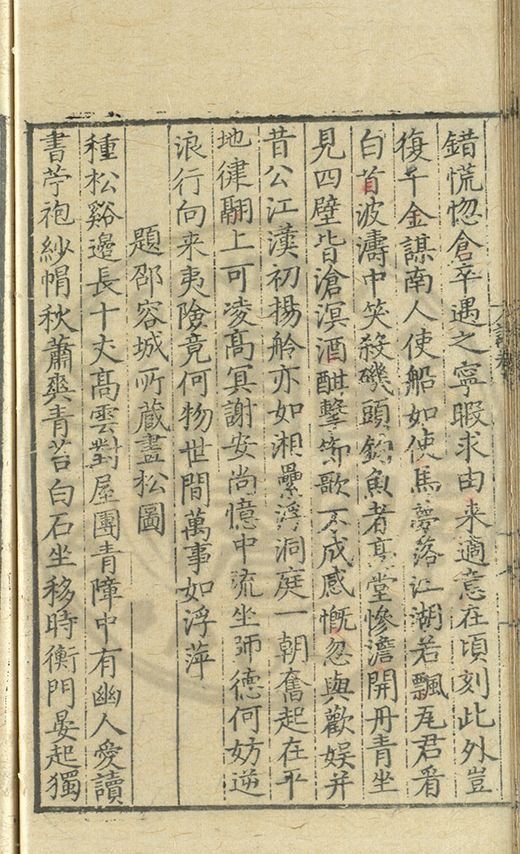 錯慌惚倉卒遇之寧暇求由来適意在頃刻此外豈
復千金謀南人使船如使馬夢落江湖若飄瓦君看
白首波濤中笑殺磯頭釣魚者高堂慘澹開丹青坐
見四壁皆滄溟酒酣擊節歌不成感慨忽與歡娱并
昔公江漢初揚舲亦如湘纍浮洞庭一朝奮起在平
地律翮上可凌高冥謝安尚憶中流坐師德何妨逆
浪行向来夷險竟何物世間萬事如浮萍
題邵容城所藏畫松圖
種松谿邊長十丈高雲對屋團青障中有幽人愛讀
書苧袍紗帽秋蕭爽青苔白石坐移時衡門晏起獨